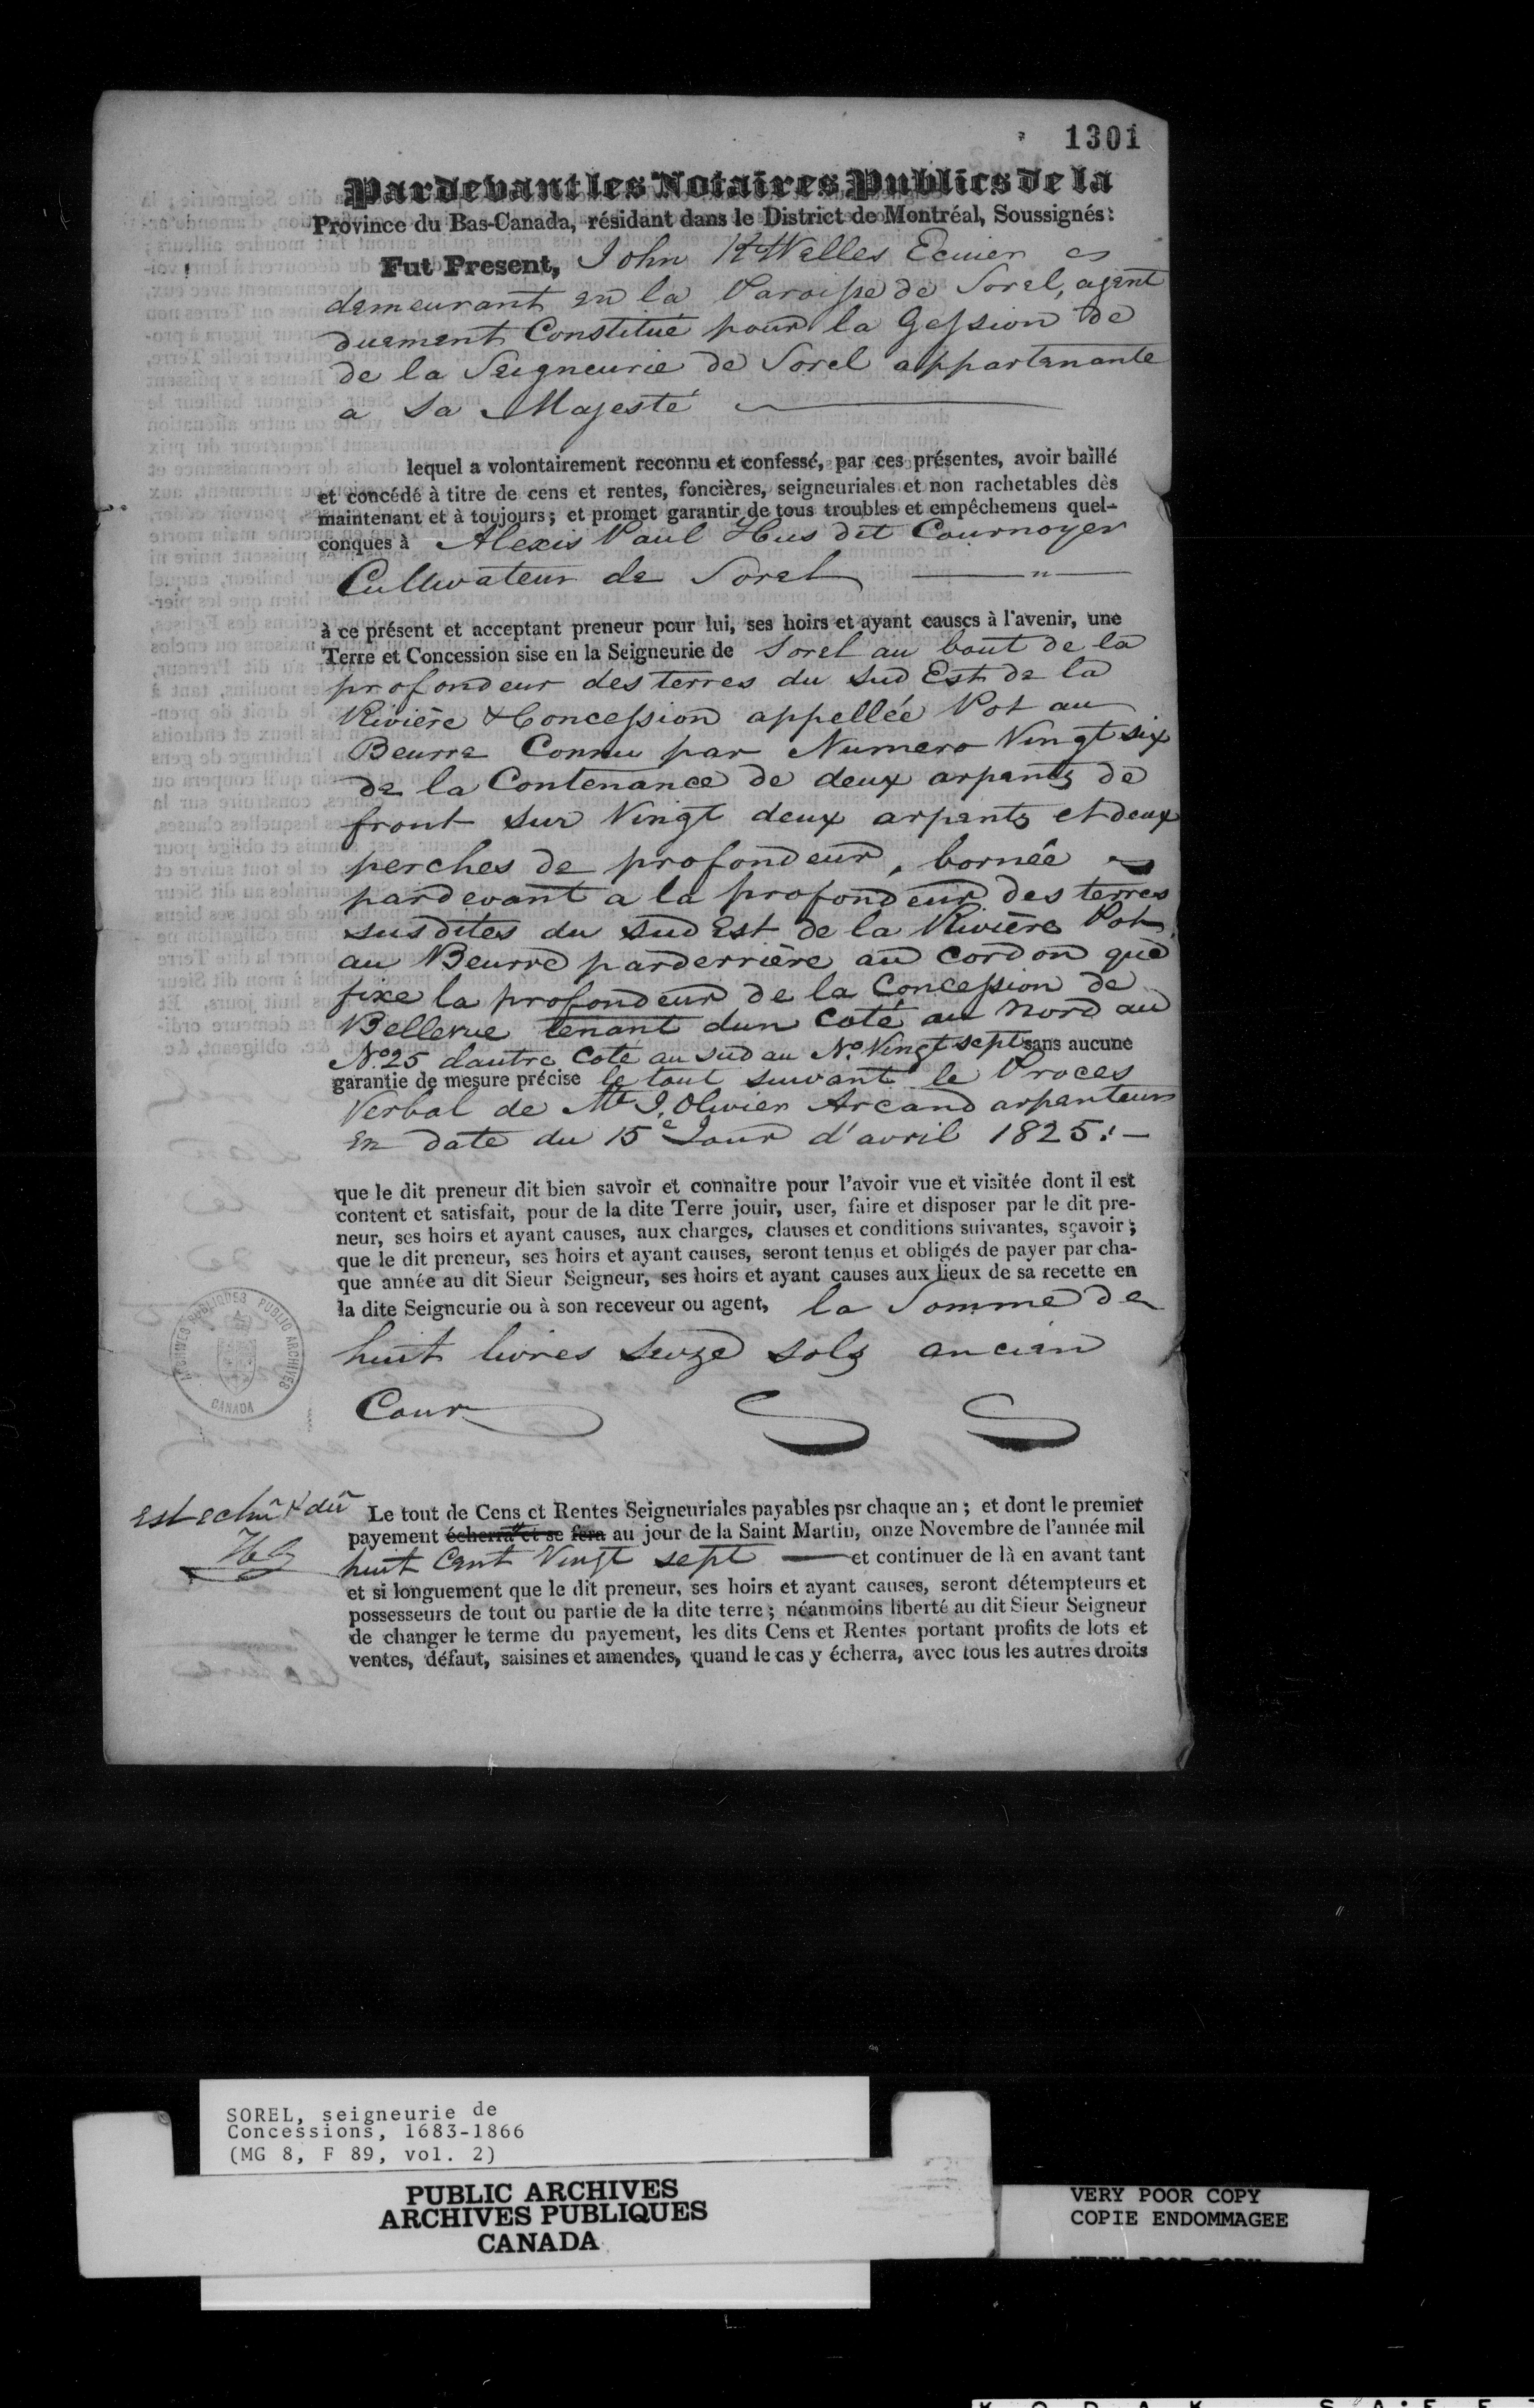 1301
Pardevant les Notaires Publics de la
Province du Bas-Canada, résidant dans le District de Montréal, Soussignés:
Fut Present, John Kt Welles Ecuier
demeurant en la Paroisse de Sorel, agent
duement Constitué pour la Gession de
de la Seigneurie de Sorel appartenante
a Sa Majesté
lequel a volontairement reconnu et confessé, par ces présentes, avoir baillé
et concédé à titre de cens et rentes, foncières, seigneuriales et non rachetables dès
maintenant et à toujours; et promet garantir de tous troubles et empêchemens quel-
conques à Alexis Paul Hus dit Cournoyer
Cultivateur de Sorel
à ce présent et acceptant preneur pour lui, ses hoirs et ayant causes à l'avenir, une
Terre et Concession sise en la Seigneurie de Sorel au bout de la
profondeur des terres du Sud Est de la
Rivière & Concession appellée Pot au
Beurre Connu par Numero Vingt six
de la Contenance de deux arpents de
front sur Vingt deux arpents et deux
perches de profondeur, bornée
pardevant a la profondeur des terres
susdites du sud Est de la Rivière Pot
au Beurre parderrière au cordon que
fixe la profondeur de la Concession de
Bellevue tenant dun coté au nord au
No. 25 dautre coté au sud au No. Vingt sept sans aucune
garantie de mesure précise le tout suivant le Proces
Verbal de Mr J. Olivier Arcand arpenteur
En date du 15e Jour d'avril 1825:—
que le dit preneur dit bien savoir et connaitre pour l'avoir vue et visitée dont il est
content et satisfait, pour de la dite Terre jouir, user, faire et disposer par le dit pre-
neur, ses hoirs et ayant causes, aux charges, clauses et conditions suivantes, sçavoir;
que le dit preneur, ses hoirs et ayant causes, seront tenus et obligés de payer par cha-
que année au dit Sieur Seigneur, ses hoirs et ayant causes aux lieux de sa recette en
la dite Seigneurie ou à son receveur ou agent, la Somme de
huit livres seize sols ancien
Cour
ARCHIVES PUBLIQUES PUBLIC ARCHIVES
CANADA
Est echû & dû
Le tout de Cens et Rentes Seigneuriales payables psr chaque an; et dont le premier
payement écherra et se fera au jour de la Saint Martin, onze Novembre de l'année mil
huit Cent Vingt sept — et continuer de là en avant tant
et si longuement que le dit preneur, ses hoirs et ayant causes, seront détempteurs et
possesseurs de tout ou partie de la dite terre; néanmoins liberté au dit Sieur Seigneur
de changer le terme du payement, les dits Cens et Rentes portant profits de lots et
ventes, défaut, saisines et amendes, quand le cas y écherra, avec tous les autres droits
SOREL, seigneurie de
Concessions, 1683-1866
(MG 8, F 89, vol. 2)
PUBLIC ARCHIVES
ARCHIVES PUBLIQUES
CANADA
VERY POOR COPY
COPIE ENDOMMAGEE